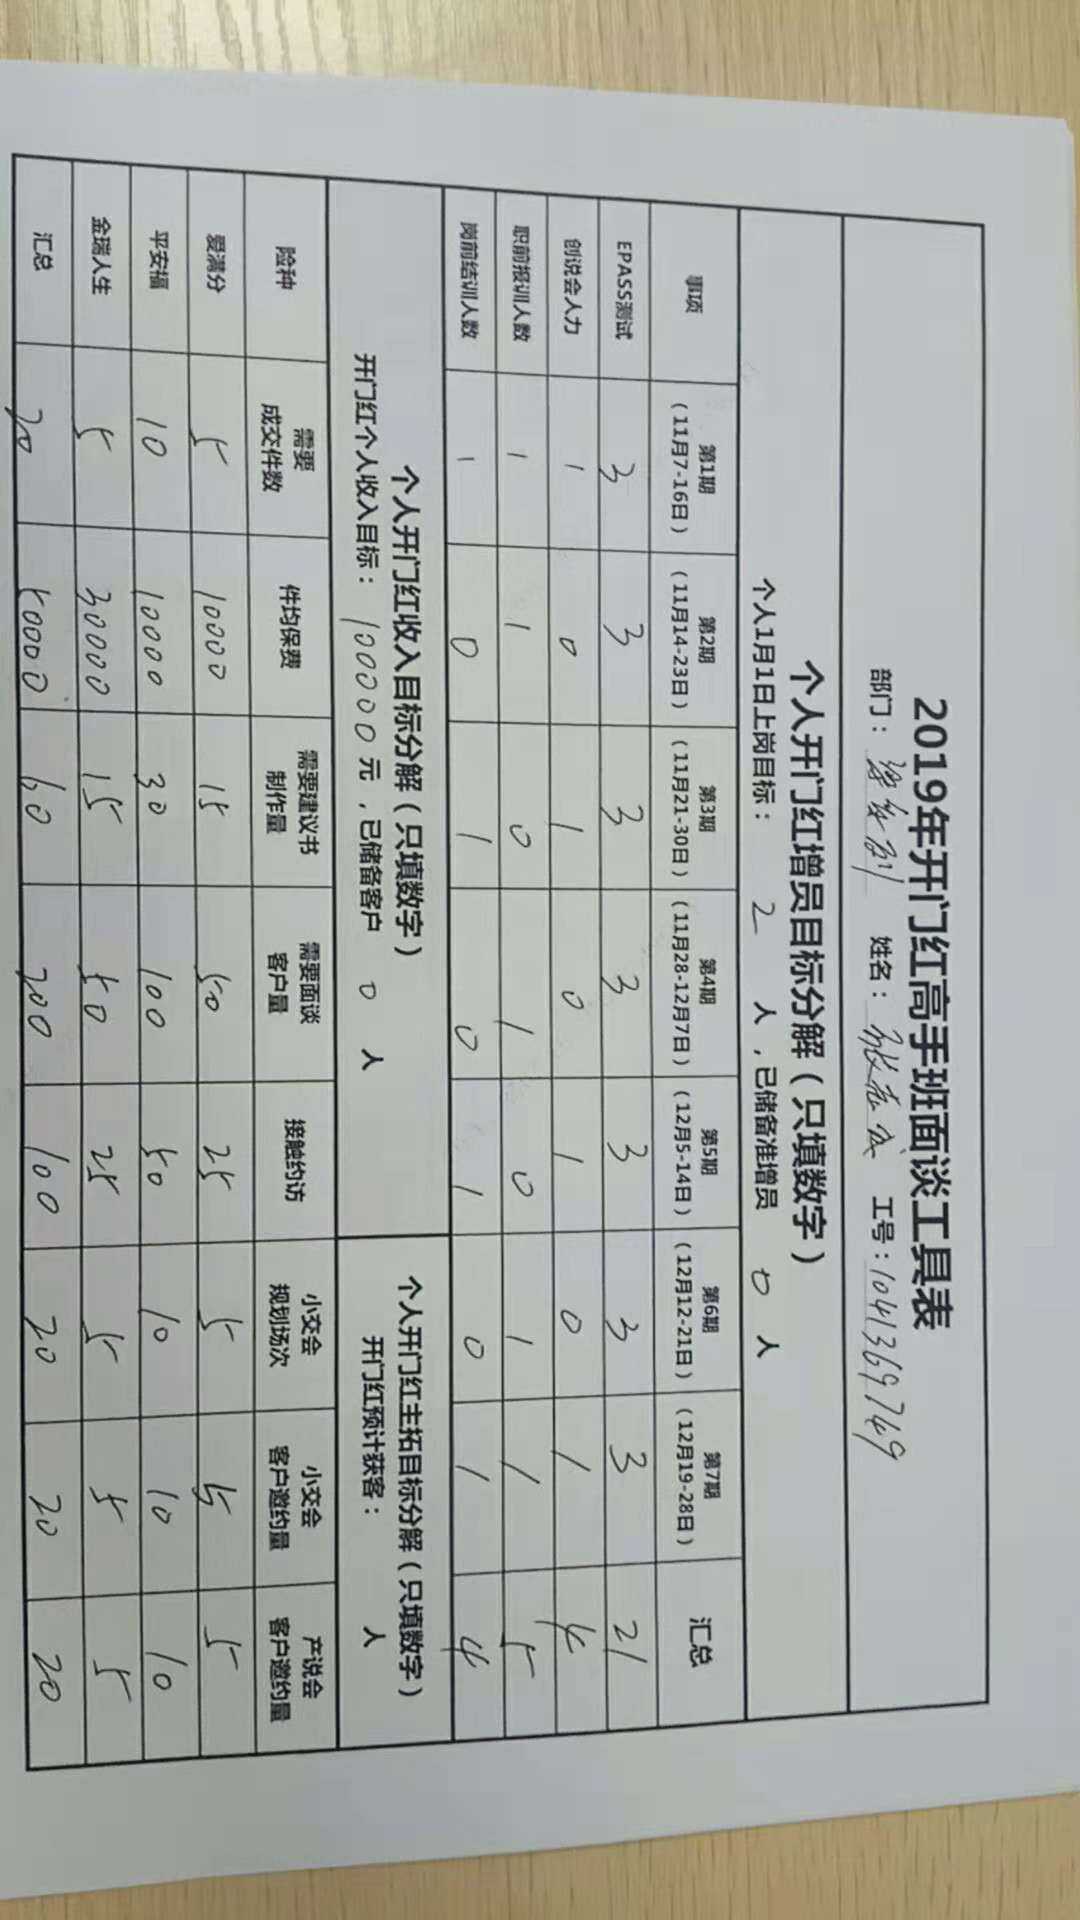 2019年开门红高手班面谈工具表
部门： 姓名： 工号：1041369749
个人开门红增员目标分解（只填数字）
个人1月1日上岗目标： 2 人，已储备准增员 0 人
事项 第1期（11月7-16日） 第2期（11月14-23日） 第3期（11月21-30日） 第4期（11月28-12月7日） 第5期（12月5-14日） 第6期（12月12-21日） 第7期（12月19-28日） 汇总
EPASS测试 3 3 3 3 3 3 3 21
创说会人力 1 0 1 0 1 0 1 4
职前报训人数 1 1 0 1 0 1 1 5
岗前结训人数 1 0 1 0 1 0 1 4
个人开门红收入目标分解（只填数字） 个人开门红主拓目标分解（只填数字）
开门红个人收入目标： 100000 元，已储备客户 0 人 开门红预计获客： 人
险种 需要成交件数 件均保费 需要建议书制作量 需要面谈客户量 接触约访 小交会规划场次 小交会客户邀约量 产说会客户邀约量
爱满分 5 10000 15 50 25 5 5 5
平安福 10 10000 30 100 50 10 10 10
金瑞人生 5 30000 15 50 25 5 5 5
汇总 20 50000 60 200 100 20 20 20